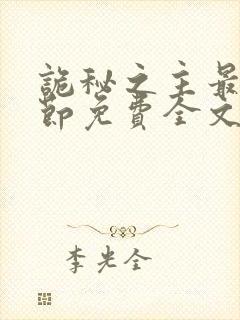 詭秘之主最
節免費全文
李光全